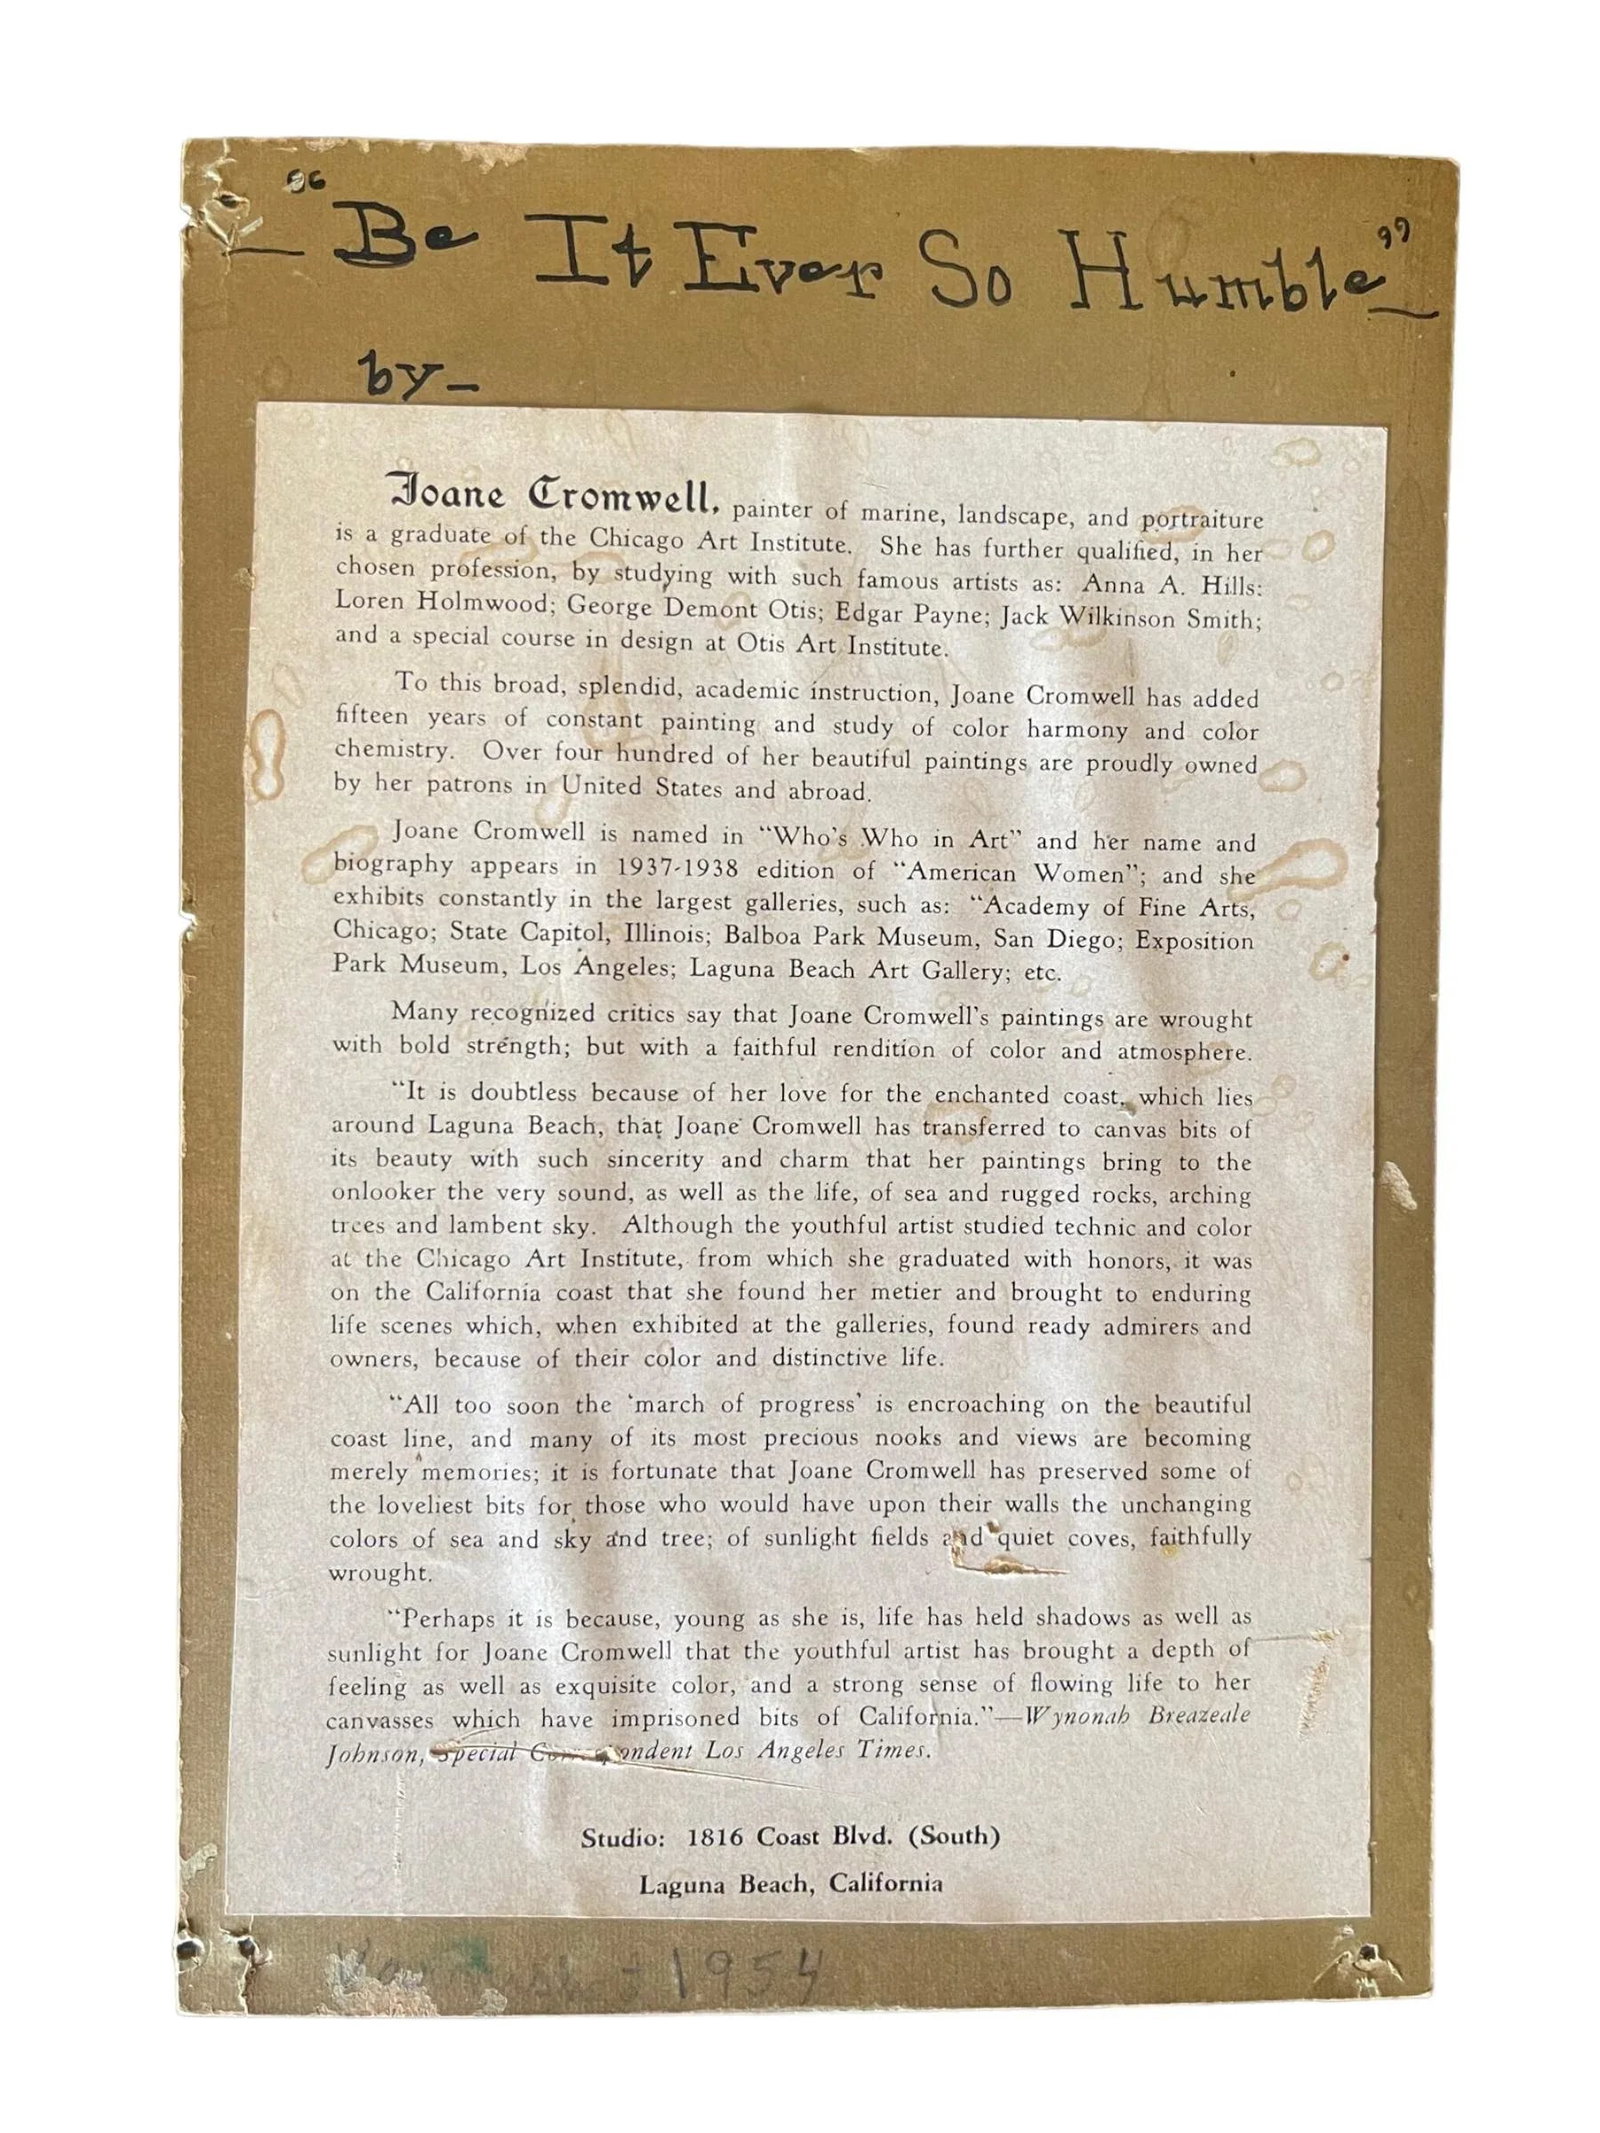 "Be It Ever So Humble"
by-
Joane Cromwell, painter of marine, landscape, and portraiture
is a graduate of the Chicago Art Institute. She has further qualified, in her
chosen profession, by studying with such famous artists as: Anna A. Hills:
Loren Holmwood; George Demont Otis; Edgar Payne; Jack Wilkinson Smith;
and a special course in design at Otis Art Institute.
To this broad, splendid, academic instruction, Joane Cromwell has added
fifteen years of constant painting and study of color harmony and color
chemistry. Over four hundred of her beautiful paintings are proudly owned
by her patrons in United States and abroad.
Joane Cromwell is named in "Who's Who in Art" and her name and
biography appears in 1937-1938 edition of "American Women"; and she
exhibits constantly in the largest galleries, such as: "Academy of Fine Arts,
Chicago; State Capitol, Illinois; Balboa Park Museum, San Diego; Exposition
Park Museum, Los Angeles; Laguna Beach Art Gallery; etc.
Many recognized critics say that Joane Cromwell's paintings are wrought
with bold strength; but with a faithful rendition of color and atmosphere.
"It is doubtless because of her love for the enchanted coast, which lies
around Laguna Beach, that Joane Cromwell has transferred to canvas bits of
its beauty with such sincerity and charm that her paintings bring to the
onlooker the very sound, as well as the life, of sea and rugged rocks, arching
trees and lambent sky. Although the youthful artist studied technic and color
at the Chicago Art Institute, from which she graduated with honors, it was
on the California coast that she found her metier and brought to enduring
life scenes which, when exhibited at the galleries, found ready admirers and
owners, because of their color and distinctive life.
"All too soon the 'march of progress' is encroaching on the beautiful
coast line, and many of its most precious nooks and views are becoming
merely memories; it is fortunate that Joane Cromwell has preserved some of
the loveliest bits for those who would have upon their walls the unchanging
colors of sea and sky and tree; of sunlight fields and quiet coves, faithfully
wrought.
"Perhaps it is because, young as she is, life has held shadows as well as
sunlight for Joane Cromwell that the youthful artist has brought a depth of
feeling as well as exquisite color, and a strong sense of flowing life to her
canvasses which have imprisoned bits of California."—Wynonah Breazeale
Johnson, Special Correspondent Los Angeles Times.
Studio: 1816 Coast Blvd. (South)
Laguna Beach, California
1954